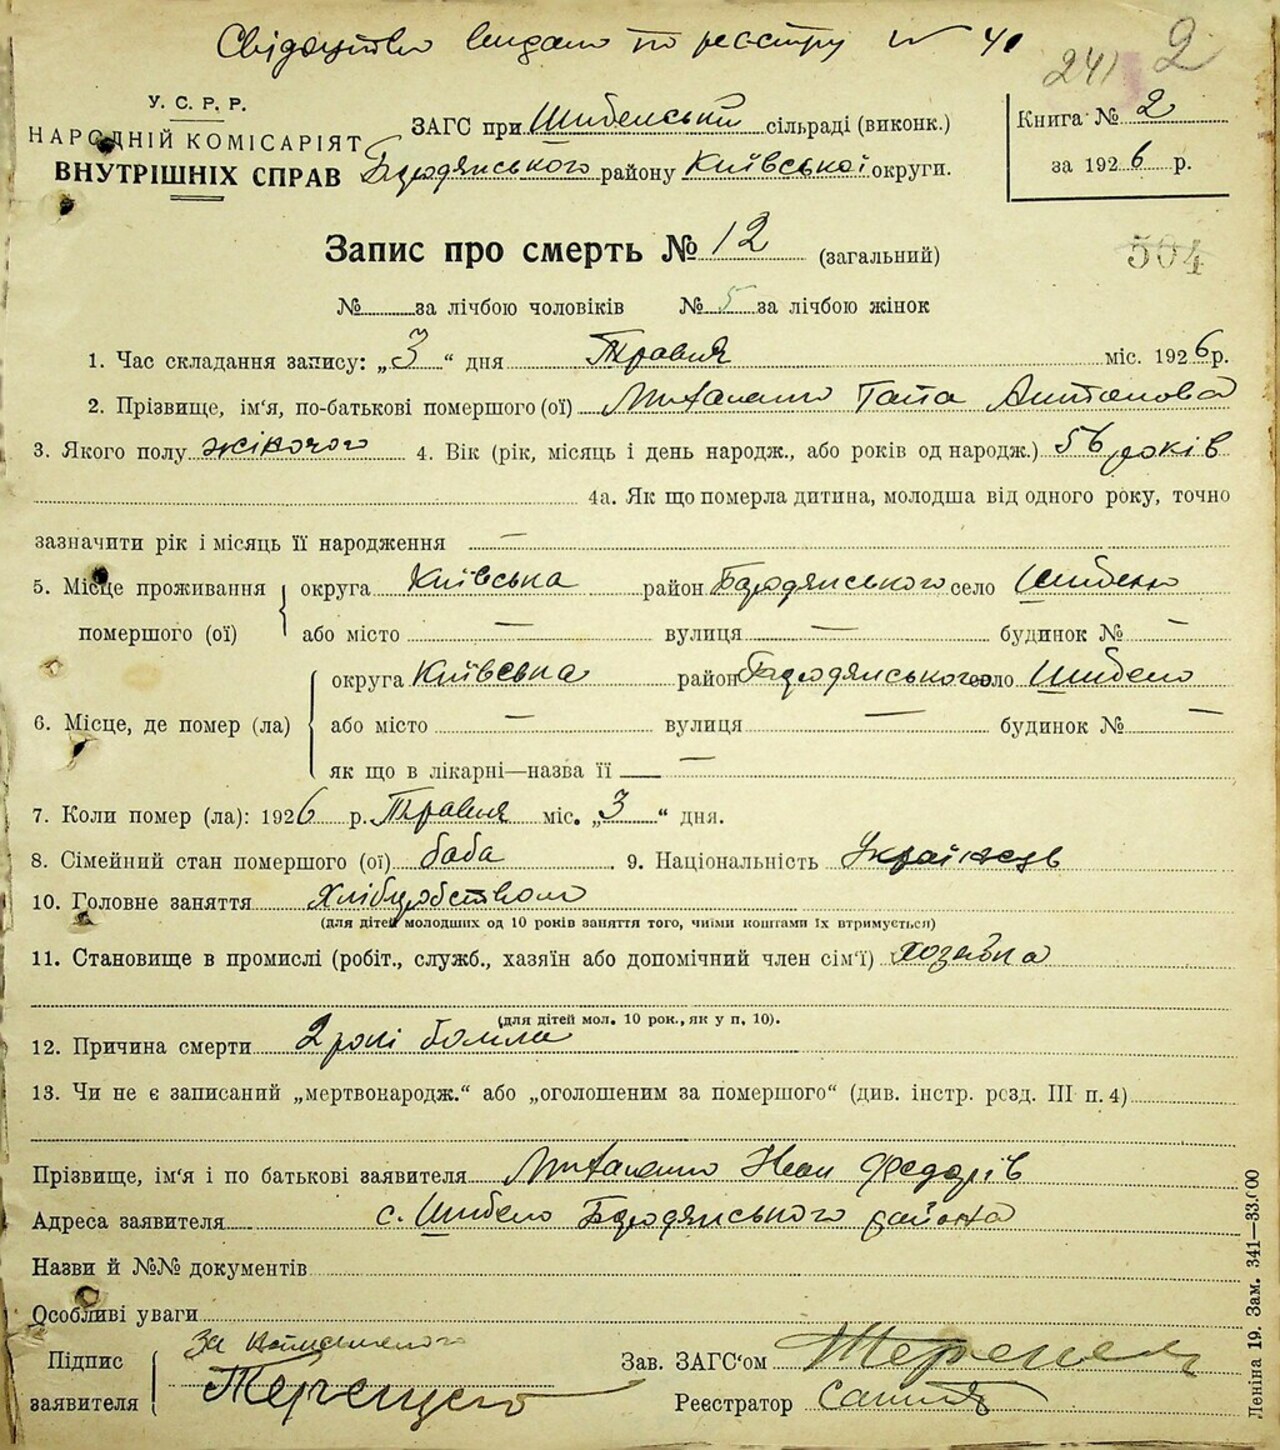 Свідоцтво видано по реєстру № 41
241 2
У. С. Р. Р.
НАРОДНІЙ КОМІСАРІЯТ
ВНУТРІШНІХ СПРАВ
ЗАГС при Шибенський сільраді (виконк.)
Бородянського району Київської округи.
Книга № 2
за 1926 р.
Запис про смерть № 12 (загальний)
504
№ за лічбою чоловіків № 5 за лічбою жінок
1. Час складання запису: „3“ дня Травня міс. 1926 р.
2. Прізвище, ім‘я, по-батькові помершого (ої) Антонова
3. Якого полу жіночого 4. Вік (рік, місяць і день народж., або років од народж.) 56 років
4а. Як що померла дитина, молодша від одного року, точно
зазначити рік і місяць її народження —
5. Місце проживання помершого (ої)
округа Київська район Бородянського село Шибено
або місто — вулиця — будинок № —
6. Місце, де помер (ла)
округа Київська район Бородянського село Шибено
або місто — вулиця — будинок № —
як що в лікарні—назва її —
7. Коли помер (ла): 1926 р. Травня міс. „3“ дня.
8. Сімейний стан помершого (ої) баба . 9. Національність
10. Головне заняття Хліборобством
(для дітей молодших од 10 років заняття того, чиїми коштами їх втримується)
11. Становище в промислі (робіт., служб., хазяїн або допомічний член сім‘ї) хозяйка
(для дітей мол. 10 рок., як у п. 10).
12. Причина смерти 2 рокі боліла
13. Чи не є записаний „мертвонародж.“ або „оголошеним за помершого“ (див. інстр. розд. III п. 4)
Прізвище, ім‘я і по батькові заявителя Іван Федорів
Адреса заявителя с. Шибено Бородянського района
Назви й №№ документів
Особливі уваги
Підпис заявителя
За
Зав. ЗАГС‘ом
Реєстратор
Леніна 19. Зам. 341—33.000